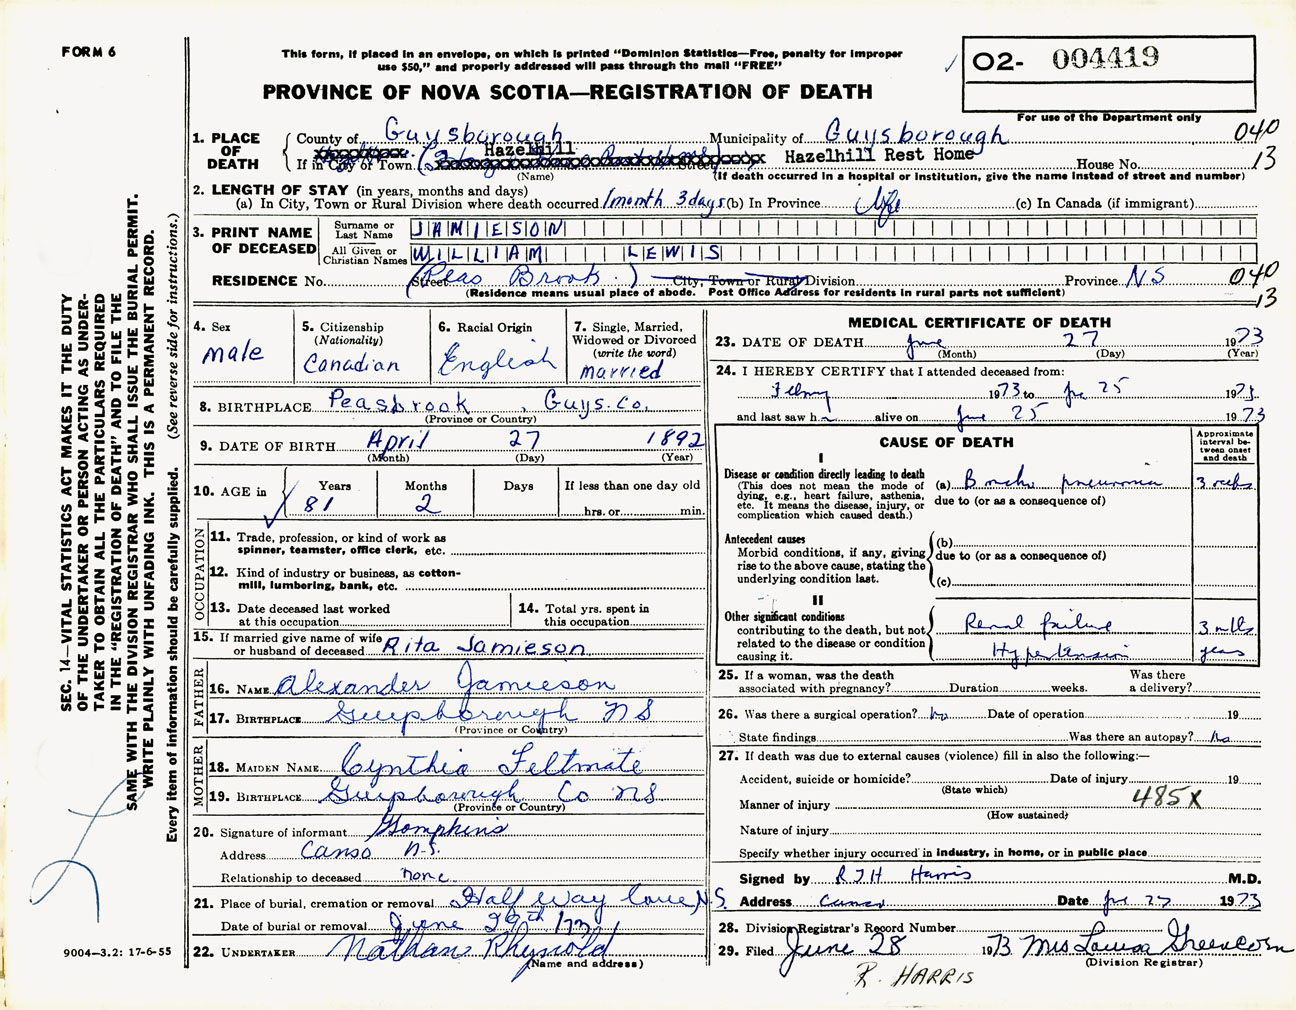 FORM 6
This form, if placed in an envelope, on which is printed "Dominion Statistics—Free, penalty for improper
use $50," and properly addressed will pass through the mail "FREE"
PROVINCE OF NOVA SCOTIA—REGISTRATION OF DEATH
O2- 004419
For use of the Department only
040
13
1. PLACE OF DEATH
County of Guysborough Municipality of Guysborough
Hazelhill
If in City or Town Hazelhill Rest Home House No.
(Name) (If death occurred in a hospital or institution, give the name instead of street and number)
2. LENGTH OF STAY (in years, months and days)
(a) In City, Town or Rural Division where death occurred 1 month 3 days (b) In Province life (c) In Canada (if immigrant)
3. PRINT NAME OF DECEASED
Surname or Last Name JAMIESON
All Given or Christian Names WILLIAM LEWIS
RESIDENCE No. Street (Peas Brook) City, Town or Rural Division Province NS
(Residence means usual place of abode. Post Office Address for residents in rural parts not sufficient)
040
13
4. Sex male
5. Citizenship (Nationality) Canadian
6. Racial Origin English
7. Single, Married, Widowed or Divorced (write the word) married
8. BIRTHPLACE Peasbrook, Guys. Co.
(Province or Country)
9. DATE OF BIRTH April 27 1892
(Month) (Day) (Year)
10. AGE in Years 81 Months 2 Days If less than one day old hrs. or min.
OCCUPATION
11. Trade, profession, or kind of work as
spinner, teamster, office clerk, etc.
12. Kind of industry or business, as cotton-
mill, lumbering, bank, etc.
13. Date deceased last worked
at this occupation
14. Total yrs. spent in
this occupation
15. If married give name of wife
or husband of deceased Rita Jamieson
FATHER
16. NAME Alexander Jamieson
17. BIRTHPLACE Guysborough NS
(Province or Country)
MOTHER
18. MAIDEN NAME Cynthia Feltmate
19. BIRTHPLACE Guysborough Co NS
(Province or Country)
20. Signature of informant
Address Canso N.S.
Relationship to deceased none
21. Place of burial, cremation or removal Half Way Cove, N.S.
Date of burial or removal June 29th /73
22. UNDERTAKER Nathan Rhynold
(Name and address)
MEDICAL CERTIFICATE OF DEATH
23. DATE OF DEATH June 27 1973
(Month) (Day) (Year)
24. I HEREBY CERTIFY that I attended deceased from:
1973 to 25 1973
and last saw h alive on June 25 1973
CAUSE OF DEATH
Approximate interval between onset and death
I
Disease or condition directly leading to death
(This does not mean the mode of
dying, e.g., heart failure, asthenia,
etc. It means the disease, injury, or
complication which caused death.)
(a) Broncho pneumonia 3 weeks
due to (or as a consequence of)
Antecedent causes
Morbid conditions, if any, giving
rise to the above cause, stating the
underlying condition last.
(b)
due to (or as a consequence of)
(c)
II
Other significant conditions
contributing to the death, but not
related to the disease or condition
causing it.
Renal failure 3 mths
Hypertension years
25. If a woman, was the death
associated with pregnancy? Duration weeks. Was there
a delivery?
26. Was there a surgical operation? no Date of operation 19
State findings Was there an autopsy? No
27. If death was due to external causes (violence) fill in also the following:—
Accident, suicide or homicide? Date of injury 19
(State which)
485X
Manner of injury
(How sustained)
Nature of injury
Specify whether injury occurred in industry, in home, or in public place
Signed by R J H Harris M.D.
Address Canso Date June 27 1973
28. Division Registrar's Record Number
29. Filed June 28 1973 Mrs Louisa Greencorn
(Division Registrar)
R. HARRIS
SEC. 14—VITAL STATISTICS ACT MAKES IT THE DUTY
OF THE UNDERTAKER OR PERSON ACTING AS UNDER-
TAKER TO OBTAIN ALL THE PARTICULARS REQUIRED
IN THE "REGISTRATION OF DEATH" AND TO FILE THE
SAME WITH THE DIVISION REGISTRAR WHO SHALL ISSUE THE BURIAL PERMIT.
WRITE PLAINLY WITH UNFADING INK. THIS IS A PERMANENT RECORD.
Every item of information should be carefully supplied. (See reverse side for instructions.)
9004—3.2: 17-6-55